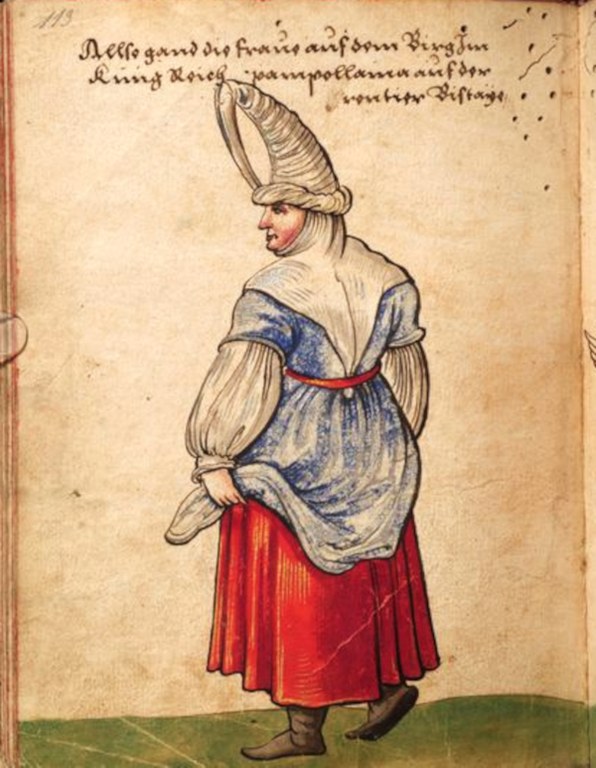 113
Allso gand die fraue auf dem Birg Im
Kunig Reich pampollania auf der
rontier Biscaye